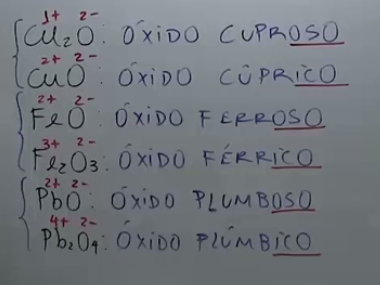 1+ 2-
Cu₂O: ÓXIDO CUPROSO
2+ 2-
CuO: ÓXIDO CÚPRICO
2+ 2-
FeO: ÓXIDO FERROSO
3+ 2-
Fe₂O₃: ÓXIDO FÉRRICO
2+ 2-
PbO: ÓXIDO PLUMBOSO
4+ 2-
Pb₂O₄: ÓXIDO PLÚMBICO